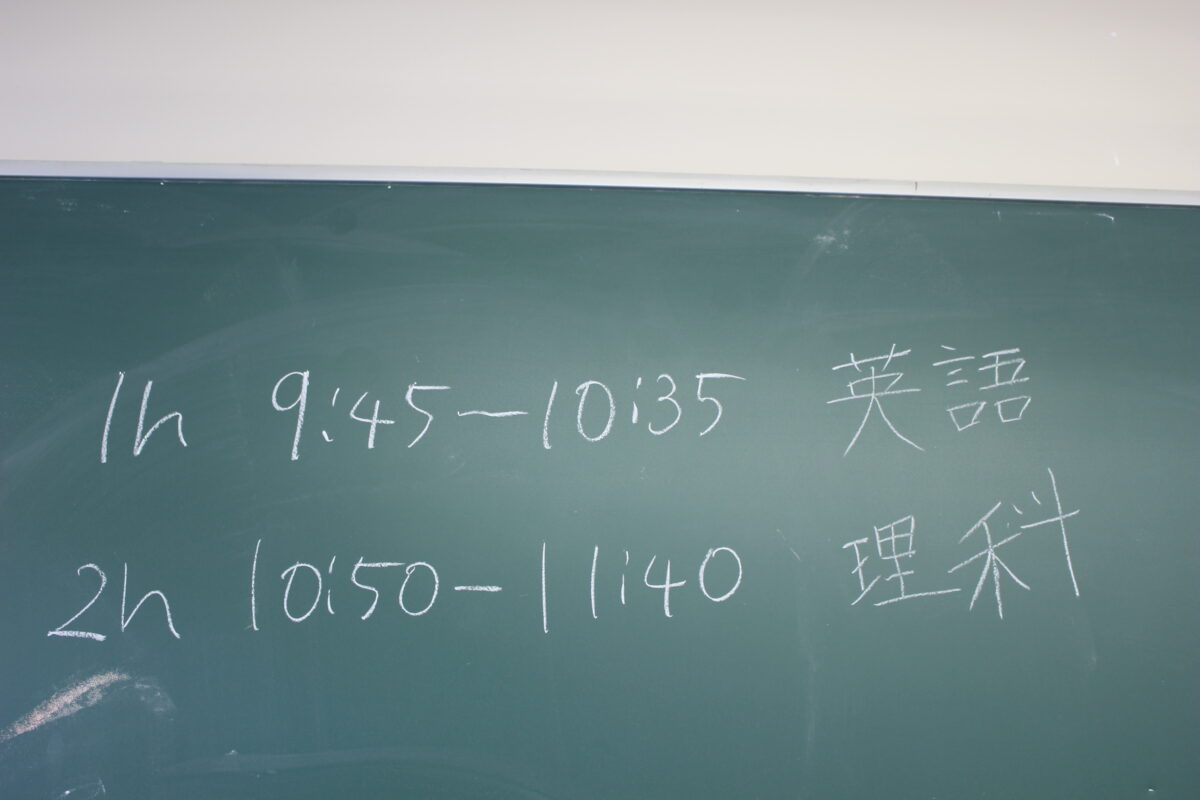 1h 9:45-10:35 英語
2h 10:50-11:40 理科